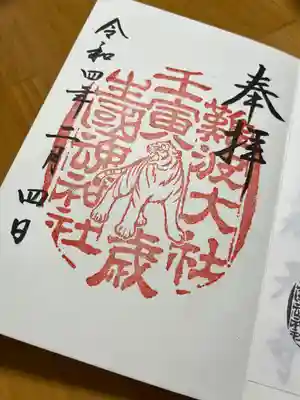 奉拝
難波大社
壬寅歳
生國魂神社
令和四年二月四日